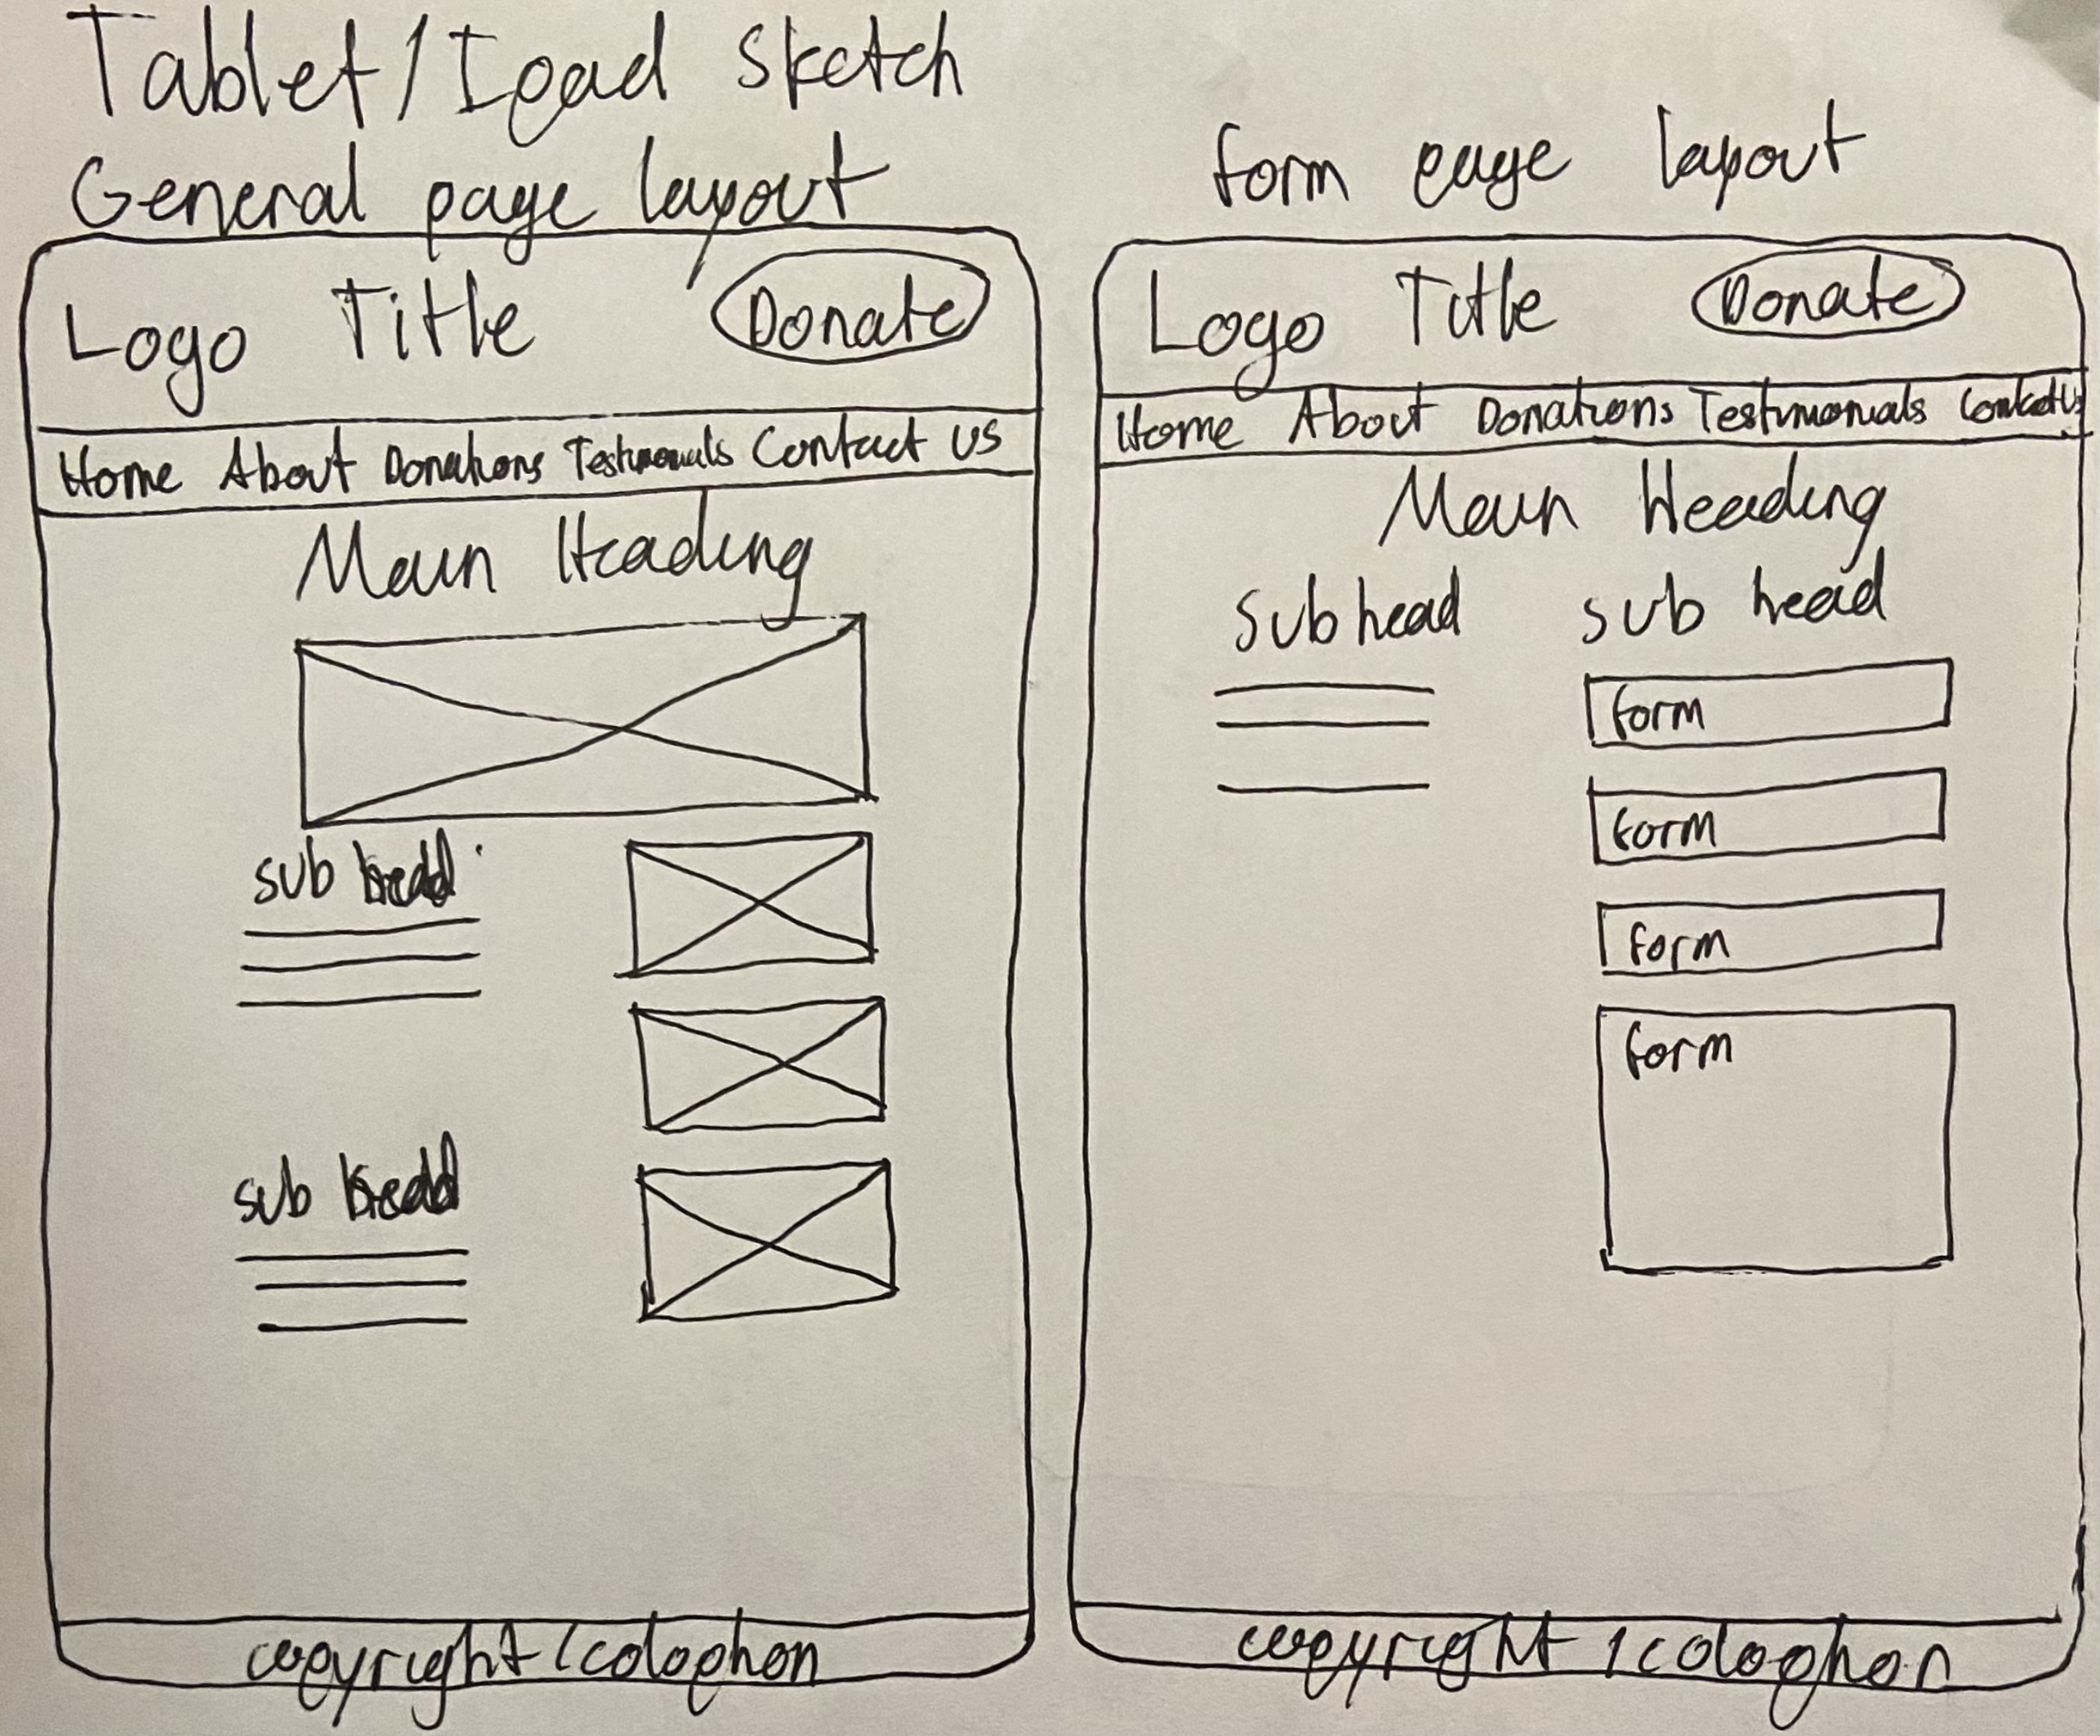 Tablet/Ipad Sketch
General page layout
Logo Title Donate
Home About Donations Testimonials Contact us
Main Heading
sub head
sub head
copyright/colophon
form page layout
Logo Title Donate
Home About Donations Testimonials Contact Us
Main Heading
Sub head sub head
form
form
form
form
copyright/colophon